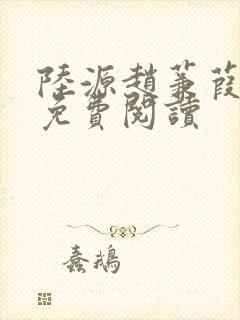 陸源趙蒹葭
免費閱讀
蠢鵝